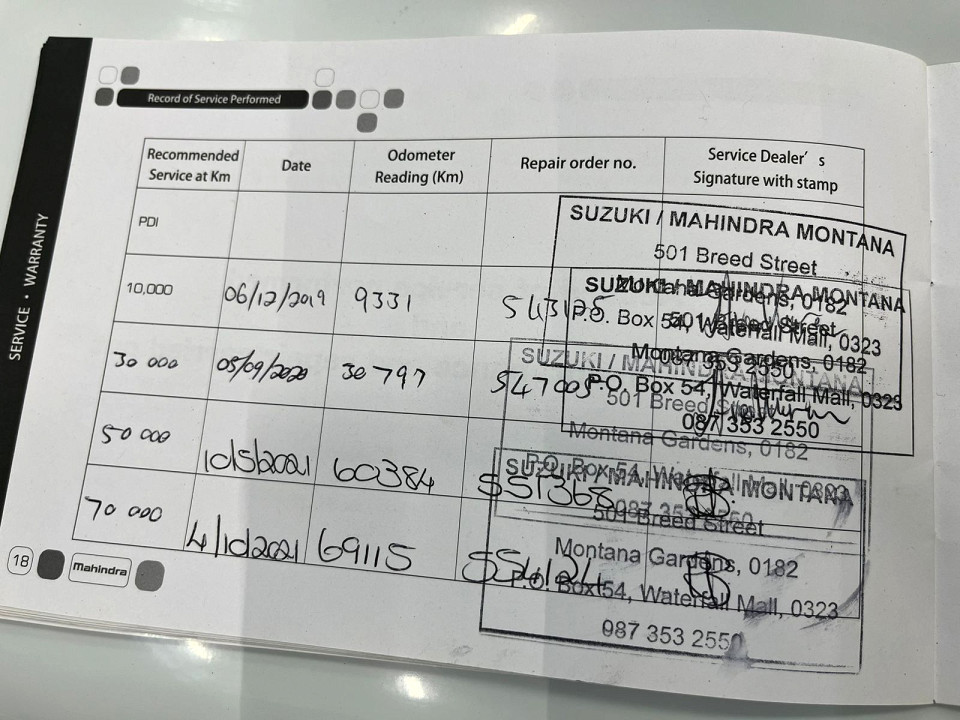 Record of Service Performed
Recommended Service at Km
Date
Odometer Reading (Km)
Repair order no.
Service Dealer's Signature with stamp
PDI
10,000 06/12/2019 9331 543125
30 000 05/09/2020 30797 547005
50 000 10/5/2021 60384 551368
70 000 4/10/2021 69115 554124
SUZUKI / MAHINDRA MONTANA
501 Breed Street
Montana Gardens, 0182
P.O. Box 54, Waterfall Mall, 0323
087 353 2550
SUZUKI / MAHINDRA MONTANA
501 Breed Street
Montana Gardens, 0182
P.O. Box 54, Waterfall Mall, 0323
087 353 2550
SUZUKI / MAHINDRA MONTANA
501 Breed Street
Montana Gardens, 0182
P.O. Box 54, Waterfall Mall, 0323
087 353 2550
SUZUKI / MAHINDRA MONTANA
501 Breed Street
Montana Gardens, 0182
P.O. Box 54, Waterfall Mall, 0323
087 353 2550
SERVICE • WARRANTY
18
Mahindra